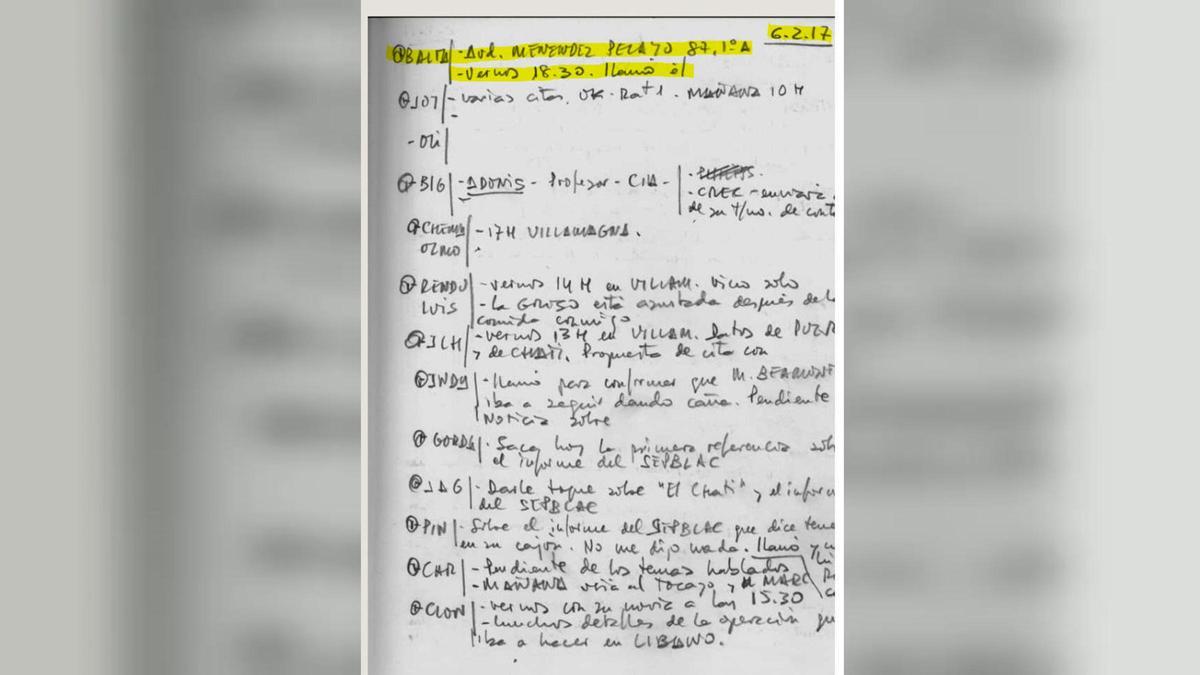 6.2.17
BALTA - Avd. MENENDEZ PELAYO 87, 1º A
- Vernos 18.30. llamó él
JOT - varias citas. OK. MAÑANA 10 H
- Oli
BIG - ADONIS - Profesor - CIA -
- CREC - enviará
de su t/no. de
CHEMA - 17H VILLAMAGNA.
OLMO
RENDU - vernos 14 H en VILLAM. Vino solo
LUIS - La GOROSO está asustada después de
comida conmigo
- vernos 13 H en VILLAM. Datos de
y de CHATI. Propuesta de cita con
INDY - llamó para confirmar que M.
iba a seguir dando caña. Pendiente
Noticia sobre
GORDA - Saca hoy la primera referencia
el informe del SEPBLAC
JAG - Darle toque sobre "El Chati" y el
del SEPBLAC
PIN - Sobre el informe del SEPBLAC que dice
en su cajón. No me dijo nada. llamó y
CAR - Pendiente de los temas hablados
- MAÑANA veía al Tocayo y
CLON - vernos con su novia a las 15.30
- muchos detalles de la operación
iba a hacer en LIBANO.